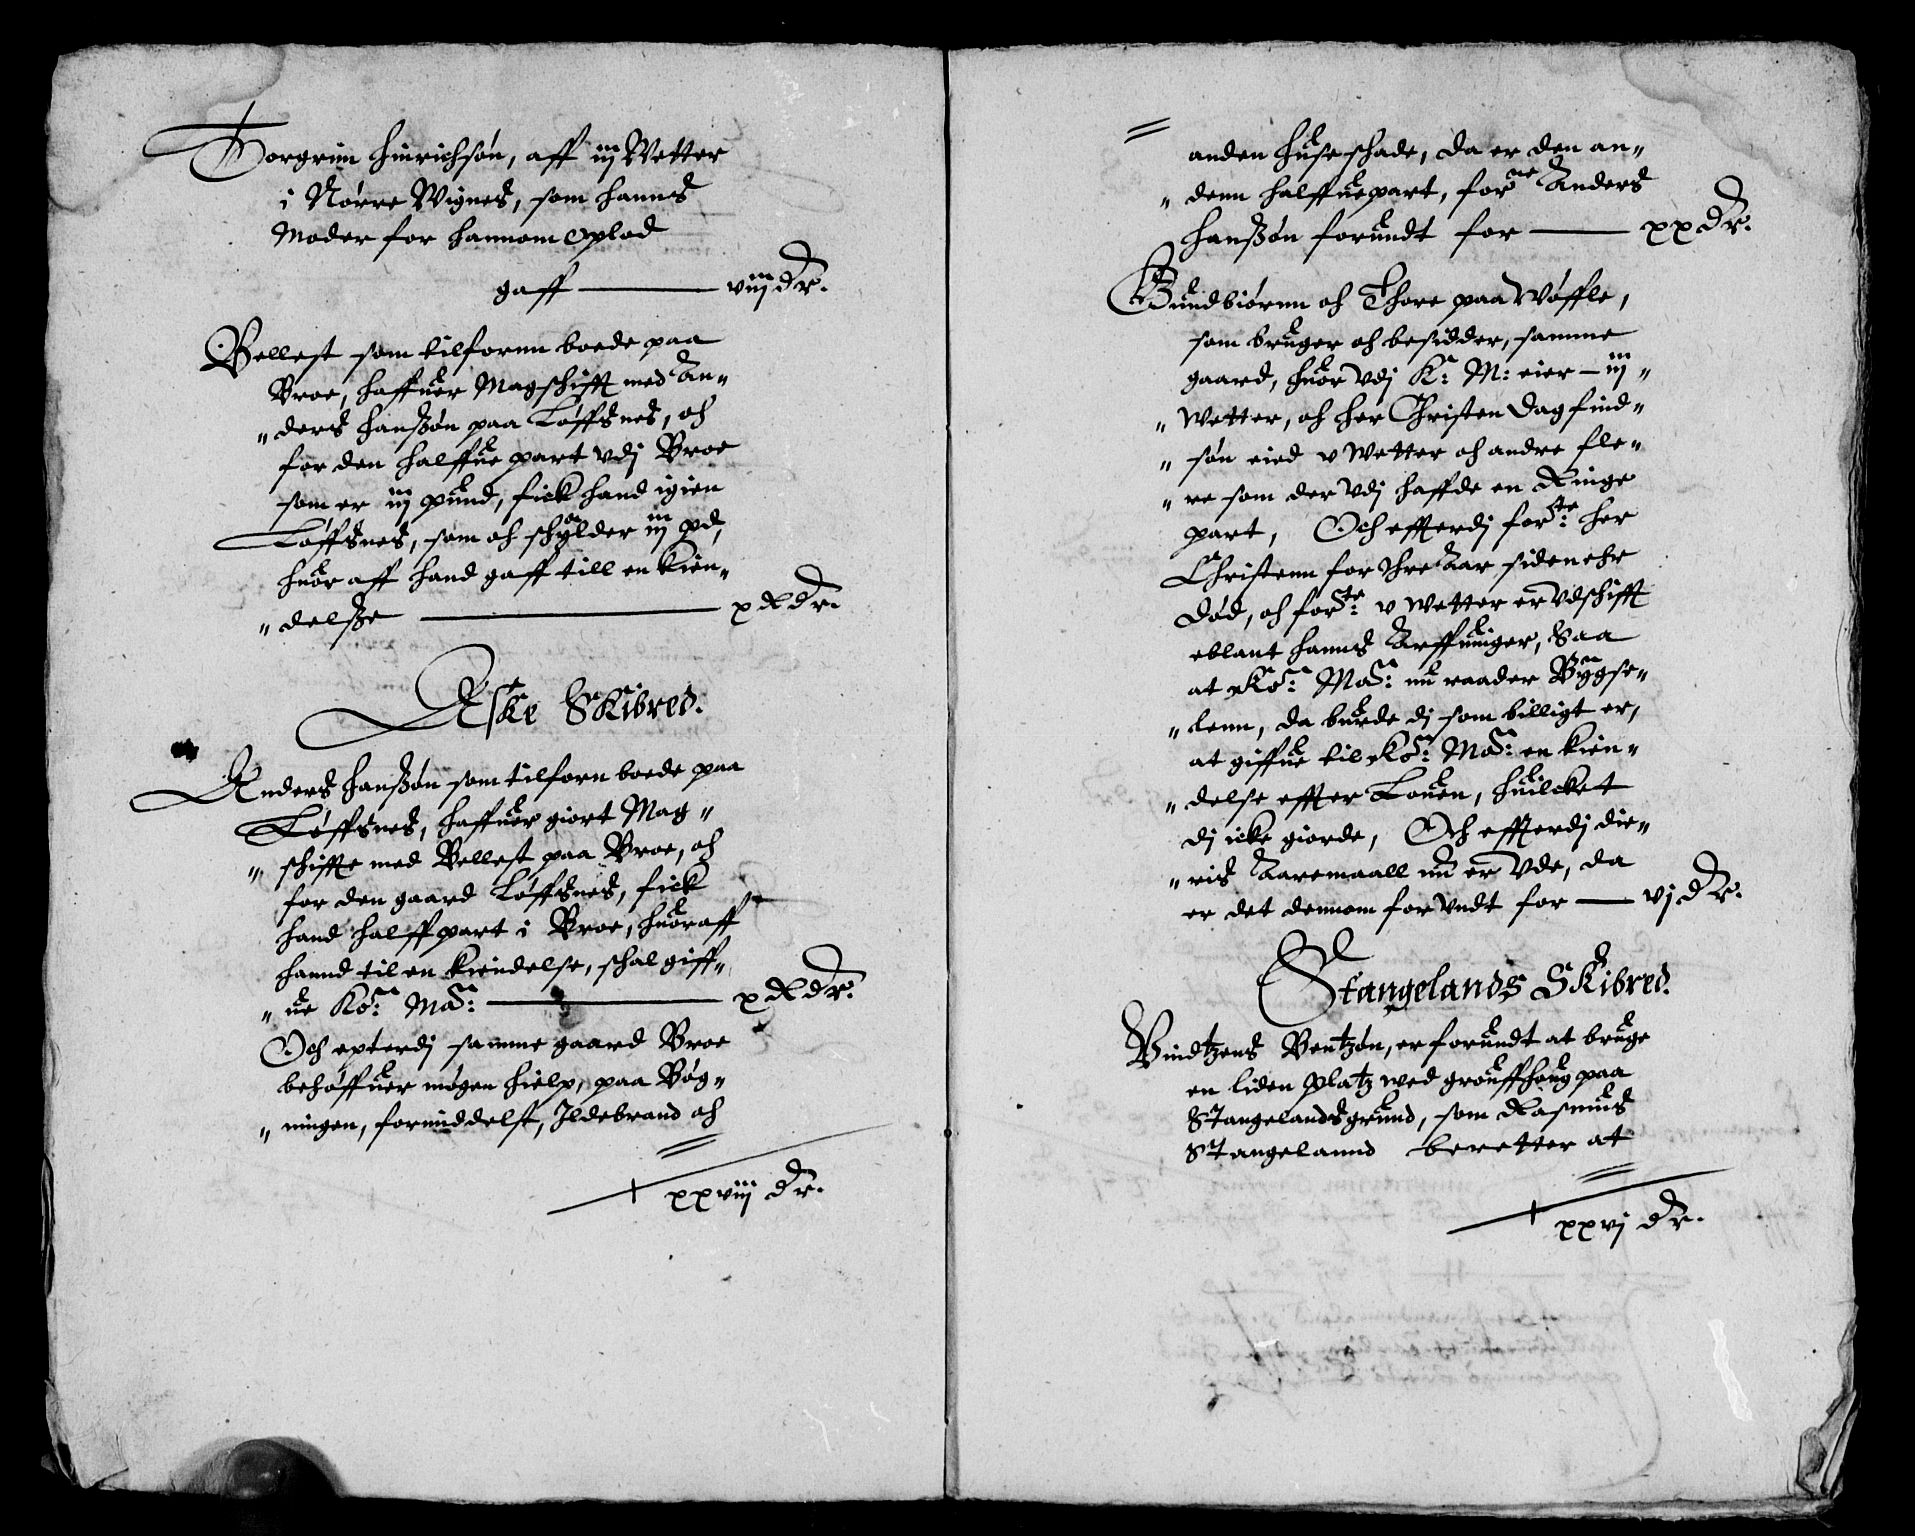 Torgrim Hinrichsøn, aff iij Wetter
i Nørre Wignes, som hanns
Moder for hannom oplod
gaff — viij dr.
Bellest som tilfornn boede paa
Broe, haffuer Magschifft med An-
" ders Hanssøn paa Løffsnes, och
for den halffue part vdj Broe
som er iij pund, fick hand igien
Løffsnes, som och schylder iij pd,
huoraff hand gaff till en kien-
" delsse — x Rdr.
Aske Skibred.
Anders Hanssøn som tilforn boede paa
Løffsnes, haffuer giort Mag-
" schiffte med Bellest paa Broe, och
for den gaard Løffsnes, fick
hand halff part i Broe, huoraff
hannd til en kiendelse, schal giff-
" ue Ko: Ma: — x Rdr.
Och epterdj samme gaard Broe
behøffuer møgen hielp, paa Bøg-
" ningen, formiddelst, Ildebrand och
xxviij dr.
anden huseschade, da er den an-
" denn halffuepart, forne Anders
Hanssøn forundt for — xx dr.
Gundbiørnn och Thore paa Wøffle,
som bruger och besidder, samme
gaard, huor vdj K: M: eier — iij
" Wetter, och her Christen Dagfind-
" søn eied v Wetter och andre fle-
" re som der vdj haffde en Ringe
part, Och effterdj forte: her
Christenn for thre Aar siden ehr
død, och forte: v Wetter er vdschifft
eblant hanns Arffuinger, Saa
at Ko: Ma: nu raader Bygse-
" lenn, da burde dj som billigt er,
at giffue til Ko: Ma: en kien-
" delse effter Louen, huilcket
dj icke giorde, Och effterdj die-
" ris Aaremaall nu er Vde, da
er det dennom for Vndt for — vj dr.
Stangelands Skibred.
Vindtzens Bentzøn, er forundt at bruge
en liden Platz wed grouffhoug paa
Stangelandsgrund, som Rasmus
Stangelannd beretter at
xxvj dr.